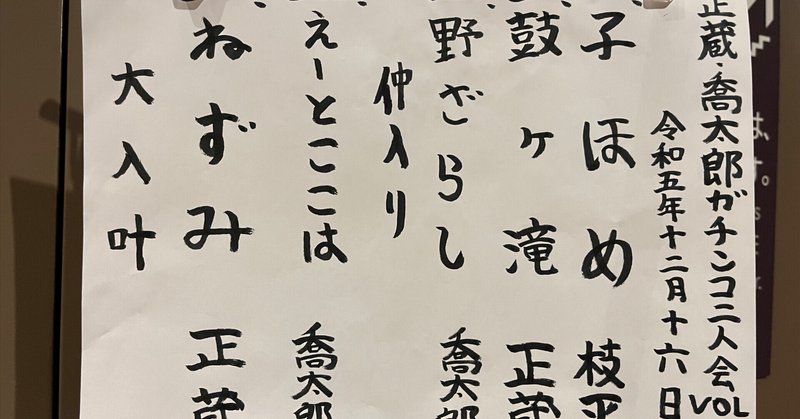 正蔵・喬太郎ガチンコ二人会VOL
令和五年十二月十六日
子ほめ 枝平
鼓ヶ滝 正蔵
野ざらし 喬太郎
仲入り
えーとここは 喬太郎
ねずみ 正蔵
大入叶